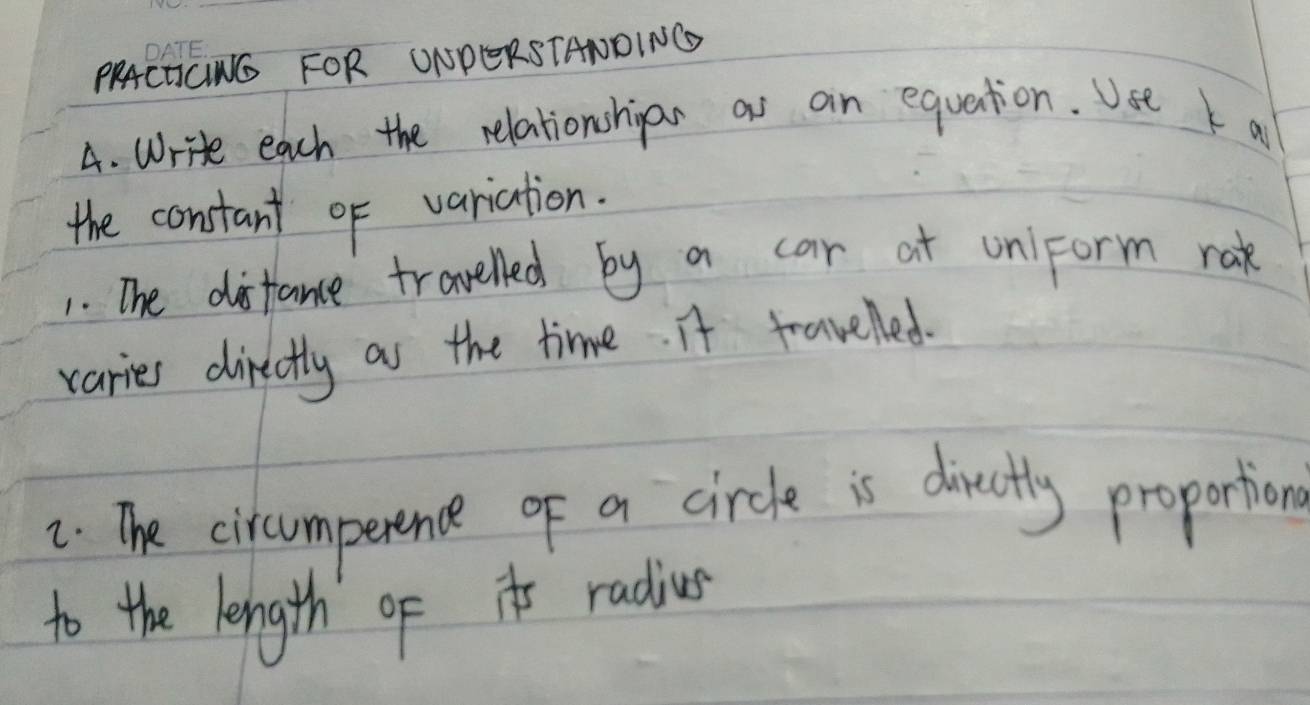 NO.
DATE:
PRACTICING FOR UNDERSTANDING
A. Write each the relationships as an equation. Use k as
the constant of variation.
1. The distance travelled by a car at uniform rate
varies directly as the time it travelled.
2. The circumperence of a circle is directly proportional
to the length of its radius